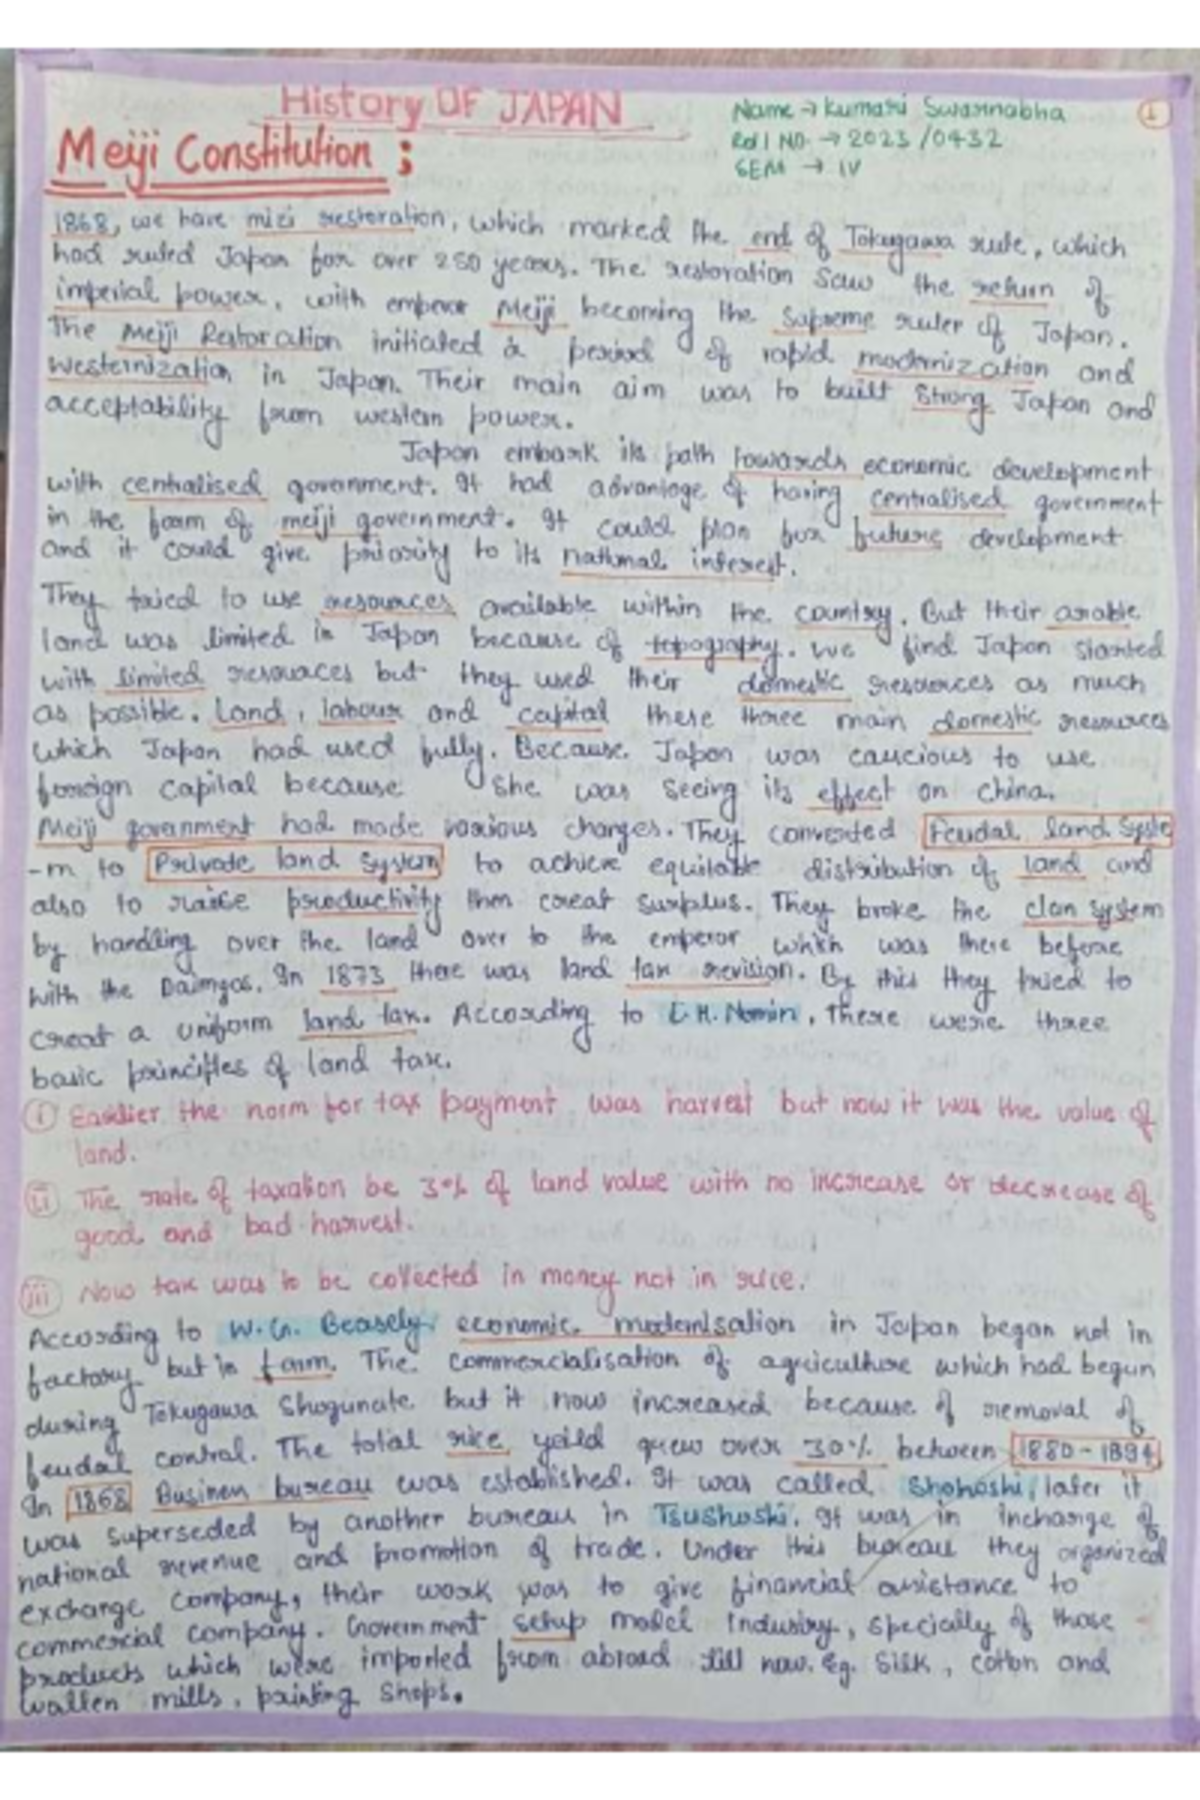 History OF JAPAN
Name → Kumari Swarnabha
Roll NO. → 2023/0432
SEM → IV
1
Meiji Constitution :
1868, we have mizi restoration, which marked the end of Tokugawa rule, which
had ruled Japan for over 250 years. The restoration Saw the return of
imperial power, with emperor Meiji becoming the Supreme ruler of Japan.
The Meiji Restoration initiated a period of rapid modernization and
westernization in Japan. Their main aim was to built Strong Japan and
acceptability from western power.
Japan embark its path towards economic development
with centralised government. It had advantage of having centralised government
in the form of meiji government. It could plan for future development
and it could give priority to its national interest.
They tried to use resources available within the country. But their arable
land was limited in Japan because of topography. We find Japan started
with limited resources but they used their domestic resources as much
as possible. Land, labour and capital these three main domestic resources
which Japan had used fully. Because Japan was caucious to use
foreign capital because She was Seeing its effect on China.
Meiji government had made various changes. They converted Feudal land Syste
-m to Private land System to achieve equitable distribution of land and
also to raise productivity then creat surplus. They broke the clan system
by handling over the land over to the emperor which was there before
with the Daimyos. In 1873 there was land tax revision. By this they tried to
creat a uniform land tax. According to E.H. Nomin, There were three
basic principles of land tax.
i) Earlier the norm for tax payment was harvest but now it was the value of
land.
ii) The rate of taxation be 3% of land value with no increase or decrease of
good and bad harvest.
iii) Now tax was to be collected in money not in rice.
According to W.G. Beasely economic modernisation in Japan began not in
factory but in farm. The commercialisation of agriculture which had begun
during Tokugawa Shogunate but it now increased because of removal of
feudal control. The total rice yeild grew over 30% between 1880-1894
In 1868 Businen bureau was established. It was called Shohoshi, later it
was superseded by another bureau in Tsushoshi. It was in incharge of
national revenue and promotion of trade. Under this bureau they organized
exchange company, their work was to give financial assistance to
commercial company. Government setup model Industry, specially of those
products which were imported from abroad till now. Eg. Silk, cotton and
wallen mills, painting Shops.